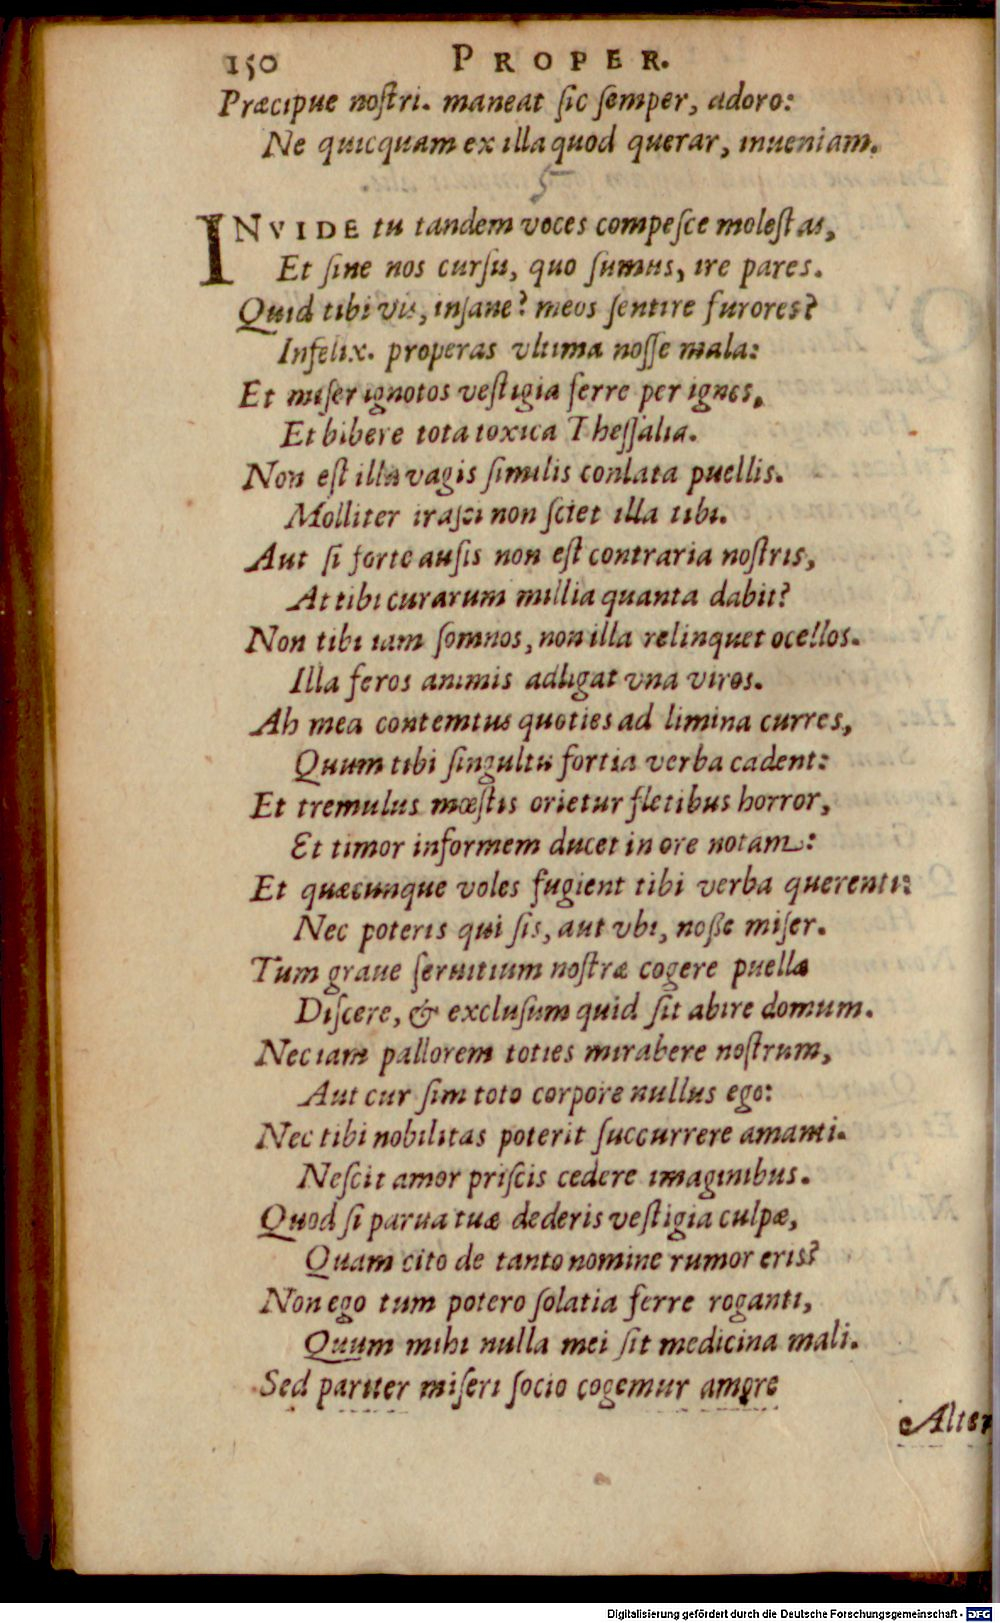 150 PROPER.
Præcipue nostri. maneat sic semper, adoro:
Ne quicquam ex illa quod querar, inueniam.
5
INVIDE tu tandem voces compesce molestas,
Et sine nos cursu, quo sumus, ire pares.
Quid tibi vis, insane? meos sentire furores?
Infelix. properas vltima nosse mala:
Et miser ignotos vestigia ferre per ignes,
Et bibere tota toxica Thessalia.
Non est illa vagis similis conlata puellis.
Molliter irasci non sciet illa tibi.
Aut si forte ausis non est contraria nostris,
At tibi curarum millia quanta dabit?
Non tibi iam somnos, non illa relinquet ocellos.
Illa feros animis adligat vna viros.
Ah mea contemtus quoties ad limina curres,
Quum tibi singultu fortia verba cadent:
Et tremulus mœstis orietur fletibus horror,
Et timor informem ducet in ore notam:
Et quæcunque voles fugient tibi verba querenti:
Nec poteris qui sis, aut vbi, nosse miser.
Tum graue seruitium nostræ cogere puellæ
Discere, & exclusum quid sit abire domum.
Nec iam pallorem toties mirabere nostrum,
Aut cur sim toto corpore nullus ego:
Nec tibi nobilitas poterit succurrere amanti.
Nescit amor priscis cedere imaginibus.
Quod si parua tuæ dederis vestigia culpæ,
Quam cito de tanto nomine rumor eris?
Non ego tum potero solatia ferre roganti,
Quum mihi nulla mei sit medicina mali.
Sed pariter miseri socio cogemur amore
Alter
Digitalisierung gefördert durch die Deutsche Forschungsgemeinschaft - DFG